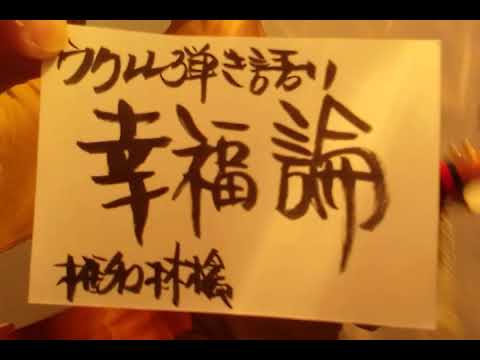 ウクレレ弾き語り
幸福論
椎名林檎